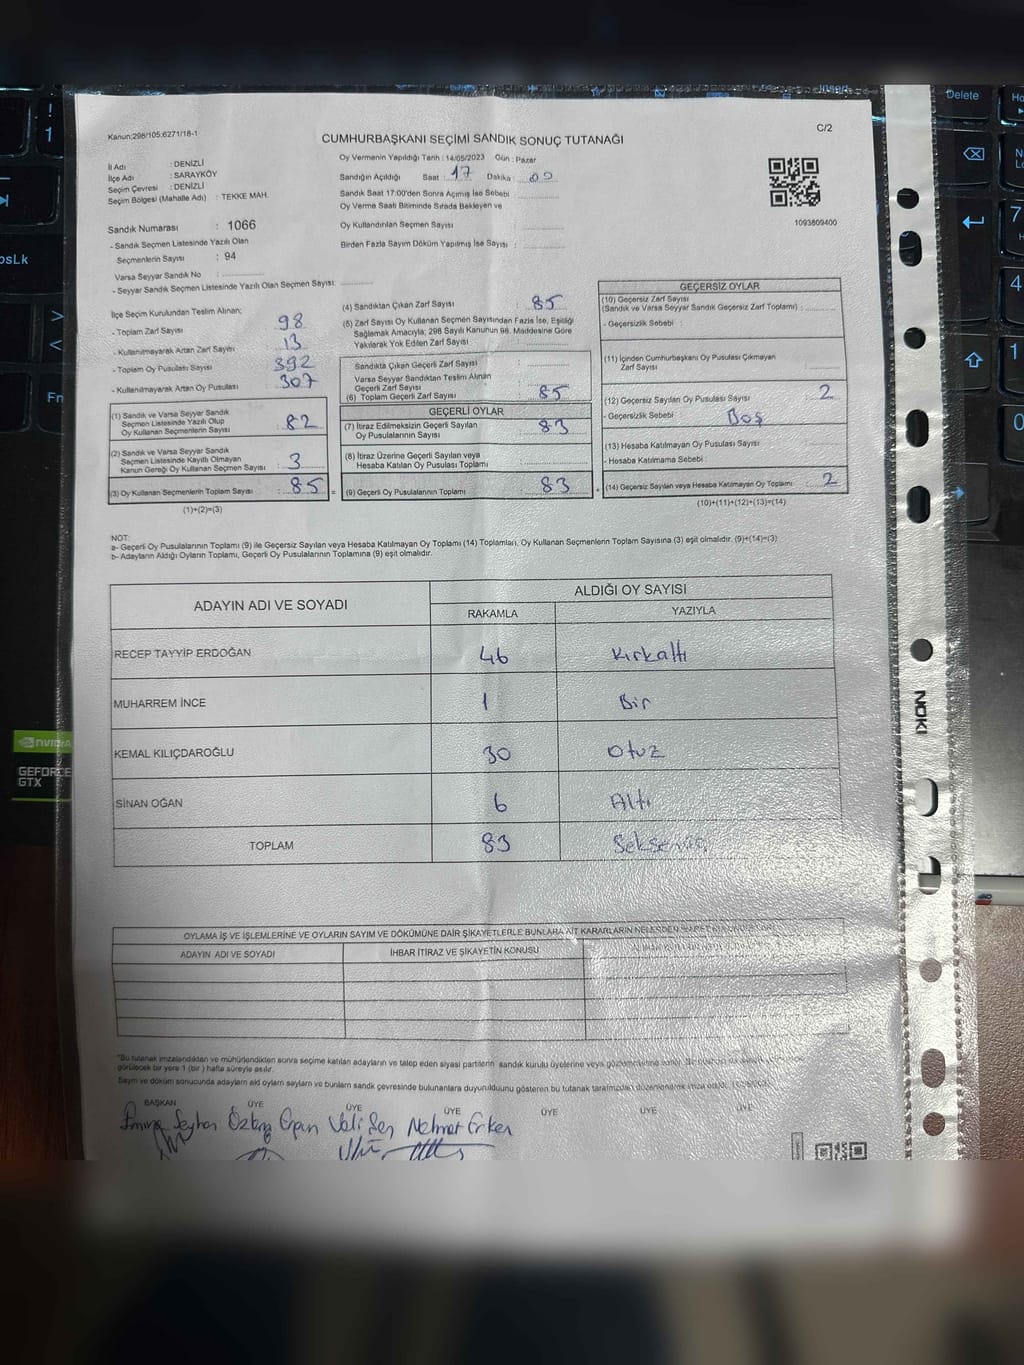 Delete
C/2
Kanun:298/105;6271/18-1
CUMHURBAŞKANI SEÇİMİ SANDIK SONUÇ TUTANAĞI
İl Adı : DENİZLİ
İlçe Adı : SARAYKÖY
Seçim Çevresi : DENİZLİ
Seçim Bölgesi (Mahalle Adı) : TEKKE MAH.
Oy Vermenin Yapıldığı Tarih : 14/05/2023 Gün : Pazar
Sandığın Açıldığı Saat : 17 Dakika : 00
Sandık Saat 17:00'den Sonra Açımış İse Sebebi :
Oy Verme Saati Bitiminde Sırada Bekleyen ve
Oy Kullandırılan Seçmen Sayısı
Birden Fazla Sayım Döküm Yapılmış İse Sayısı :
1093809400
Sandık Numarası : 1066
- Sandık Seçmen Listesinde Yazılı Olan
Seçmenlerin Sayısı : 94
Varsa Seyyar Sandık No :
- Seyyar Sandık Seçmen Listesinde Yazılı Olan Seçmen Sayısı:
İlçe Seçim Kurulundan Teslim Alınan;
- Toplam Zarf Sayısı : 98
- Kullanılmayarak Artan Zarf Sayısı : 13
- Toplam Oy Pusulası Sayısı : 392
- Kullanılmayarak Artan Oy Pusulası : 307
(1) Sandık ve Varsa Seyyar Sandık
Seçmen Listesinde Yazılı Olup
Oy Kullanan Seçmenlerin Sayısı : 82
(2) Sandık ve Varsa Seyyar Sandık
Seçmen Listesinde Kayıtlı Olmayan
Kanun Gereği Oy Kullanan Seçmen Sayısı : 3
(3) Oy Kullanan Seçmenlerin Toplam Sayısı : 85 =
(1)+(2)=(3)
(4) Sandıktan Çıkan Zarf Sayısı : 85
(5) Zarf Sayısı Oy Kullanan Seçmen Sayısından Fazla İse, Eşitliği
Sağlamak Amacıyla; 298 Sayılı Kanunun 98. Maddesine Göre
Yakılarak Yok Edilen Zarf Sayısı :
Sandıkta Çıkan Geçerli Zarf Sayısı :
Varsa Seyyar Sandıktan Teslim Alınan
Geçerli Zarf Sayısı :
(6) Toplam Geçerli Zarf Sayısı : 85
GEÇERLİ OYLAR
(7) İtiraz Edilmeksizin Geçerli Sayılan
Oy Pusulalarının Sayısı : 83
(8) İtiraz Üzerine Geçerli Sayılan veya
Hesaba Katılan Oy Pusulası Toplamı :
(9) Geçerli Oy Pusulalarının Toplamı : 83 +
GEÇERSİZ OYLAR
(10) Geçersiz Zarf Sayısı
(Sandık ve Varsa Seyyar Sandık Geçersiz Zarf Toplamı) :
- Geçersizlik Sebebi :
(11) İçinden Cumhurbaşkanı Oy Pusulası Çıkmayan
Zarf Sayısı :
(12) Geçersiz Sayılan Oy Pusulası Sayısı : 2
- Geçersizlik Sebebi : Boş
(13) Hesaba Katılmayan Oy Pusulası Sayısı
- Hesaba Katılmama Sebebi :
(14) Geçersiz Sayılan veya Hesaba Katılmayan Oy Toplamı : 2
(10)+(11)+(12)+(13)=(14)
NOT:
a- Geçerli Oy Pusulalarının Toplamı (9) ile Geçersiz Sayılan veya Hesaba Katılmayan Oy Toplamı (14) Toplamları, Oy Kullanan Seçmenlerin Toplam Sayısına (3) eşit olmalıdır. (9)+(14)=(3)
b- Adayların Aldığı Oyların Toplamı, Geçerli Oy Pusulalarının Toplamına (9) eşit olmalıdır.
ADAYIN ADI VE SOYADI
ALDIĞI OY SAYISI
RAKAMLA YAZIYLA
RECEP TAYYİP ERDOĞAN 46 Kırkaltı
MUHARREM İNCE 1 Bir
KEMAL KILIÇDAROĞLU 30 Otuz
SİNAN OĞAN 6 Altı
TOPLAM 83 Seksenüç
OYLAMA İŞ VE İŞLEMLERİNE VE OYLARIN SAYIM VE DÖKÜMÜNE DAİR ŞİKAYETLERLE BUNLARA AİT KARARLARIN
ADAYIN ADI VE SOYADI İHBAR İTİRAZ VE ŞİKAYETİN KONUSU
"Bu tutanak imzalandıktan ve mühürlendikten sonra seçime katılan adayların ve talep eden siyasi partilerin sandık kurulu üyelerine veya
görülecek bir yere 1 (bir) hafta süreyle asılır.
Sayım ve döküm sonucunda adayların aldı oyların sayıları ve bunların sandık çevresinde bulunanlara duyurulduunu gösteren bu tutanak tarafımızdan
BAŞKAN ÜYE ÜYE ÜYE ÜYE ÜYE ÜYE
Emine Seyhan Özbay Veli Şen Mehmet Erken
NOKI
NVIDIA
GEFORCE
GTX
Fn